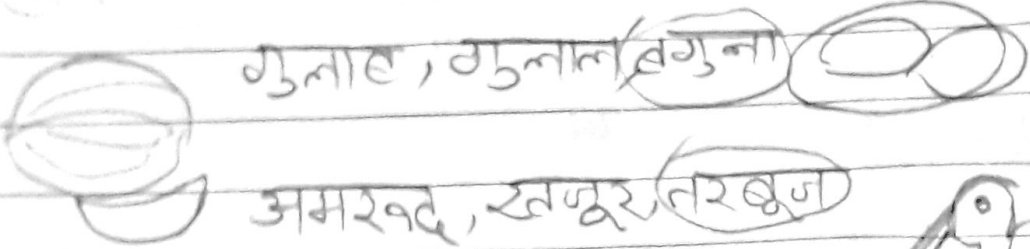 गुलाह, गुलाल, बगुला
अमरुद, खजूर, तरबूज